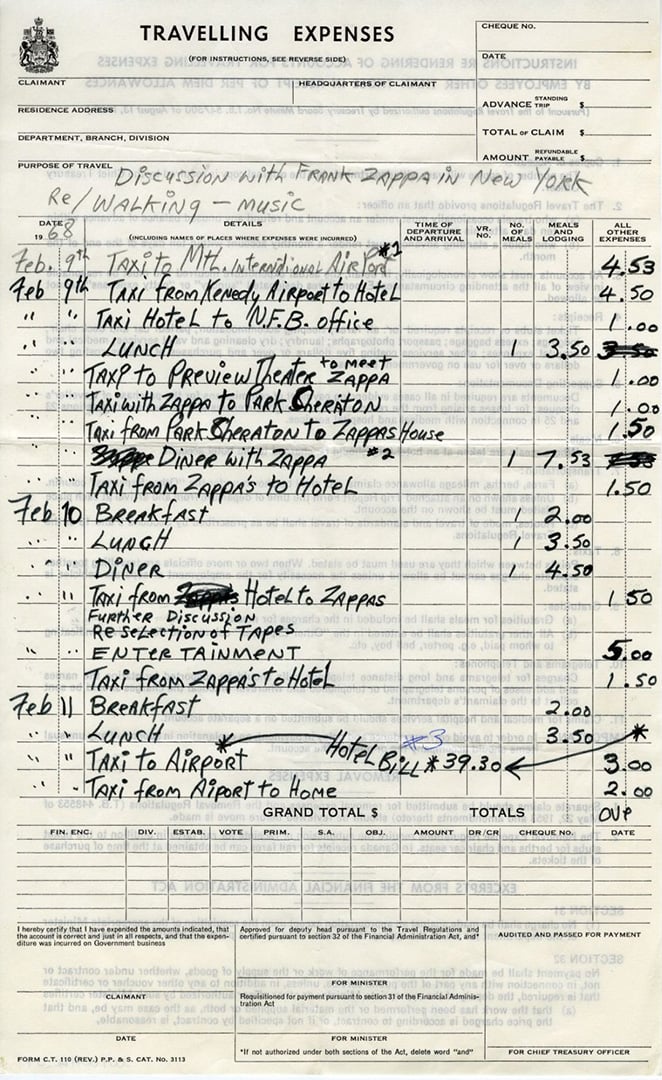 TRAVELLING EXPENSES
(FOR INSTRUCTIONS, SEE REVERSE SIDE)
CHEQUE NO.
DATE
CLAIMANT
HEADQUARTERS OF CLAIMANT
RESIDENCE ADDRESS
ADVANCE STANDING TRIP $
DEPARTMENT, BRANCH, DIVISION
TOTAL OF CLAIM $
AMOUNT REFUNDABLE PAYABLE $
PURPOSE OF TRAVEL Discussion with Frank Zappa in New York
Re/ WALKING - MUSIC
DATE 1968 DETAILS (INCLUDING NAMES OF PLACES WHERE EXPENSES WERE INCURRED) TIME OF DEPARTURE AND ARRIVAL VR. NO. NO. OF MEALS MEALS AND LODGING ALL OTHER EXPENSES
Feb. 9th TAXI to Mtl. International Airport #1 4.53
Feb 9th TAXI from Kenedy Airport to Hotel 4.50
" " TAXI Hotel to N.F.B. office 1.00
" " LUNCH 1 3.50
" " TAXI to Preview Theater to meet Zappa 1.00
" " Taxi with Zappa to Park Sheraton 1.00
" " Taxi from Park Sheraton to Zappas House 1.50
" " Diner with Zappa #2 1 7.53
" " Taxi from Zappa's to Hotel 1.50
Feb 10 Breakfast 1 2.00
" " LUNCH 1 3.50
" " DINER 1 4.50
" " TAXI from Hotel to Zappas 1 50
Further Discussion
Re selection of Tapes
" " ENTERTAINMENT 5.00
Taxi from Zappa's to Hotel 1.50
Feb 11 Breakfast 2.00
" " LUNCH 3.50 *
* Hotel Bill #3 * 39.30
" " TAXI to AIRPORT 3.00
" " TAXI from AIPORT to Home 2.00
GRAND TOTAL $ TOTALS OVP
FIN. ENC. DIV. ESTAB. VOTE PRIM. S.A. OBJ. AMOUNT DR/CR CHEQUE NO. DATE
I hereby certify that I have expended the amounts indicated, that
the account is correct and just in all respects, and that the expen-
diture was incurred on Government business
CLAIMANT
DATE
Approved for deputy head pursuant to the Travel Regulations and
certified pursuant to section 32 of the Financial Administration Act, and*
FOR MINISTER
Requisitioned for payment pursuant to section 31 of the Financial Adminis-
tration Act
FOR MINISTER
*If not authorized under both sections of the Act, delete word "and"
AUDITED AND PASSED FOR PAYMENT
FOR CHIEF TREASURY OFFICER
FORM C.T. 110 (REV.) P.P. & S. CAT. No. 3113